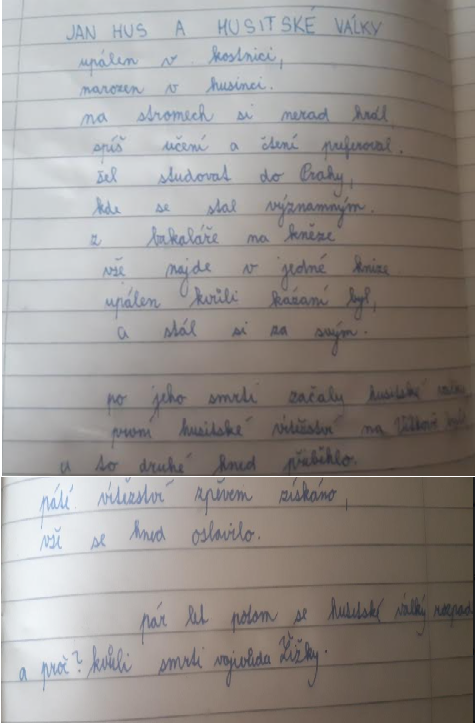 JAN HUS A HUSITSKÉ VÁLKY
upálen v kostnici,
narozen v husinci.
na stromech si nerad hrál,
spíš učení a čtení preferoval.
šel studovat do Prahy,
kde se stal významným.
z bakaláře na kněze
vše najde v jedné knize
upálen kvůli kázaní byl,
a stál si za svým.
po jeho smrti začaly husitské války
první husitské vítězství na Vítkově bylo
a to druhé hned přiběhlo.
páté vítězství zpěvem získáno,
vše se hned oslavilo.
pár let potom se husitské války rozpad
a proč? kvůli smrti vojvohda Žižky.